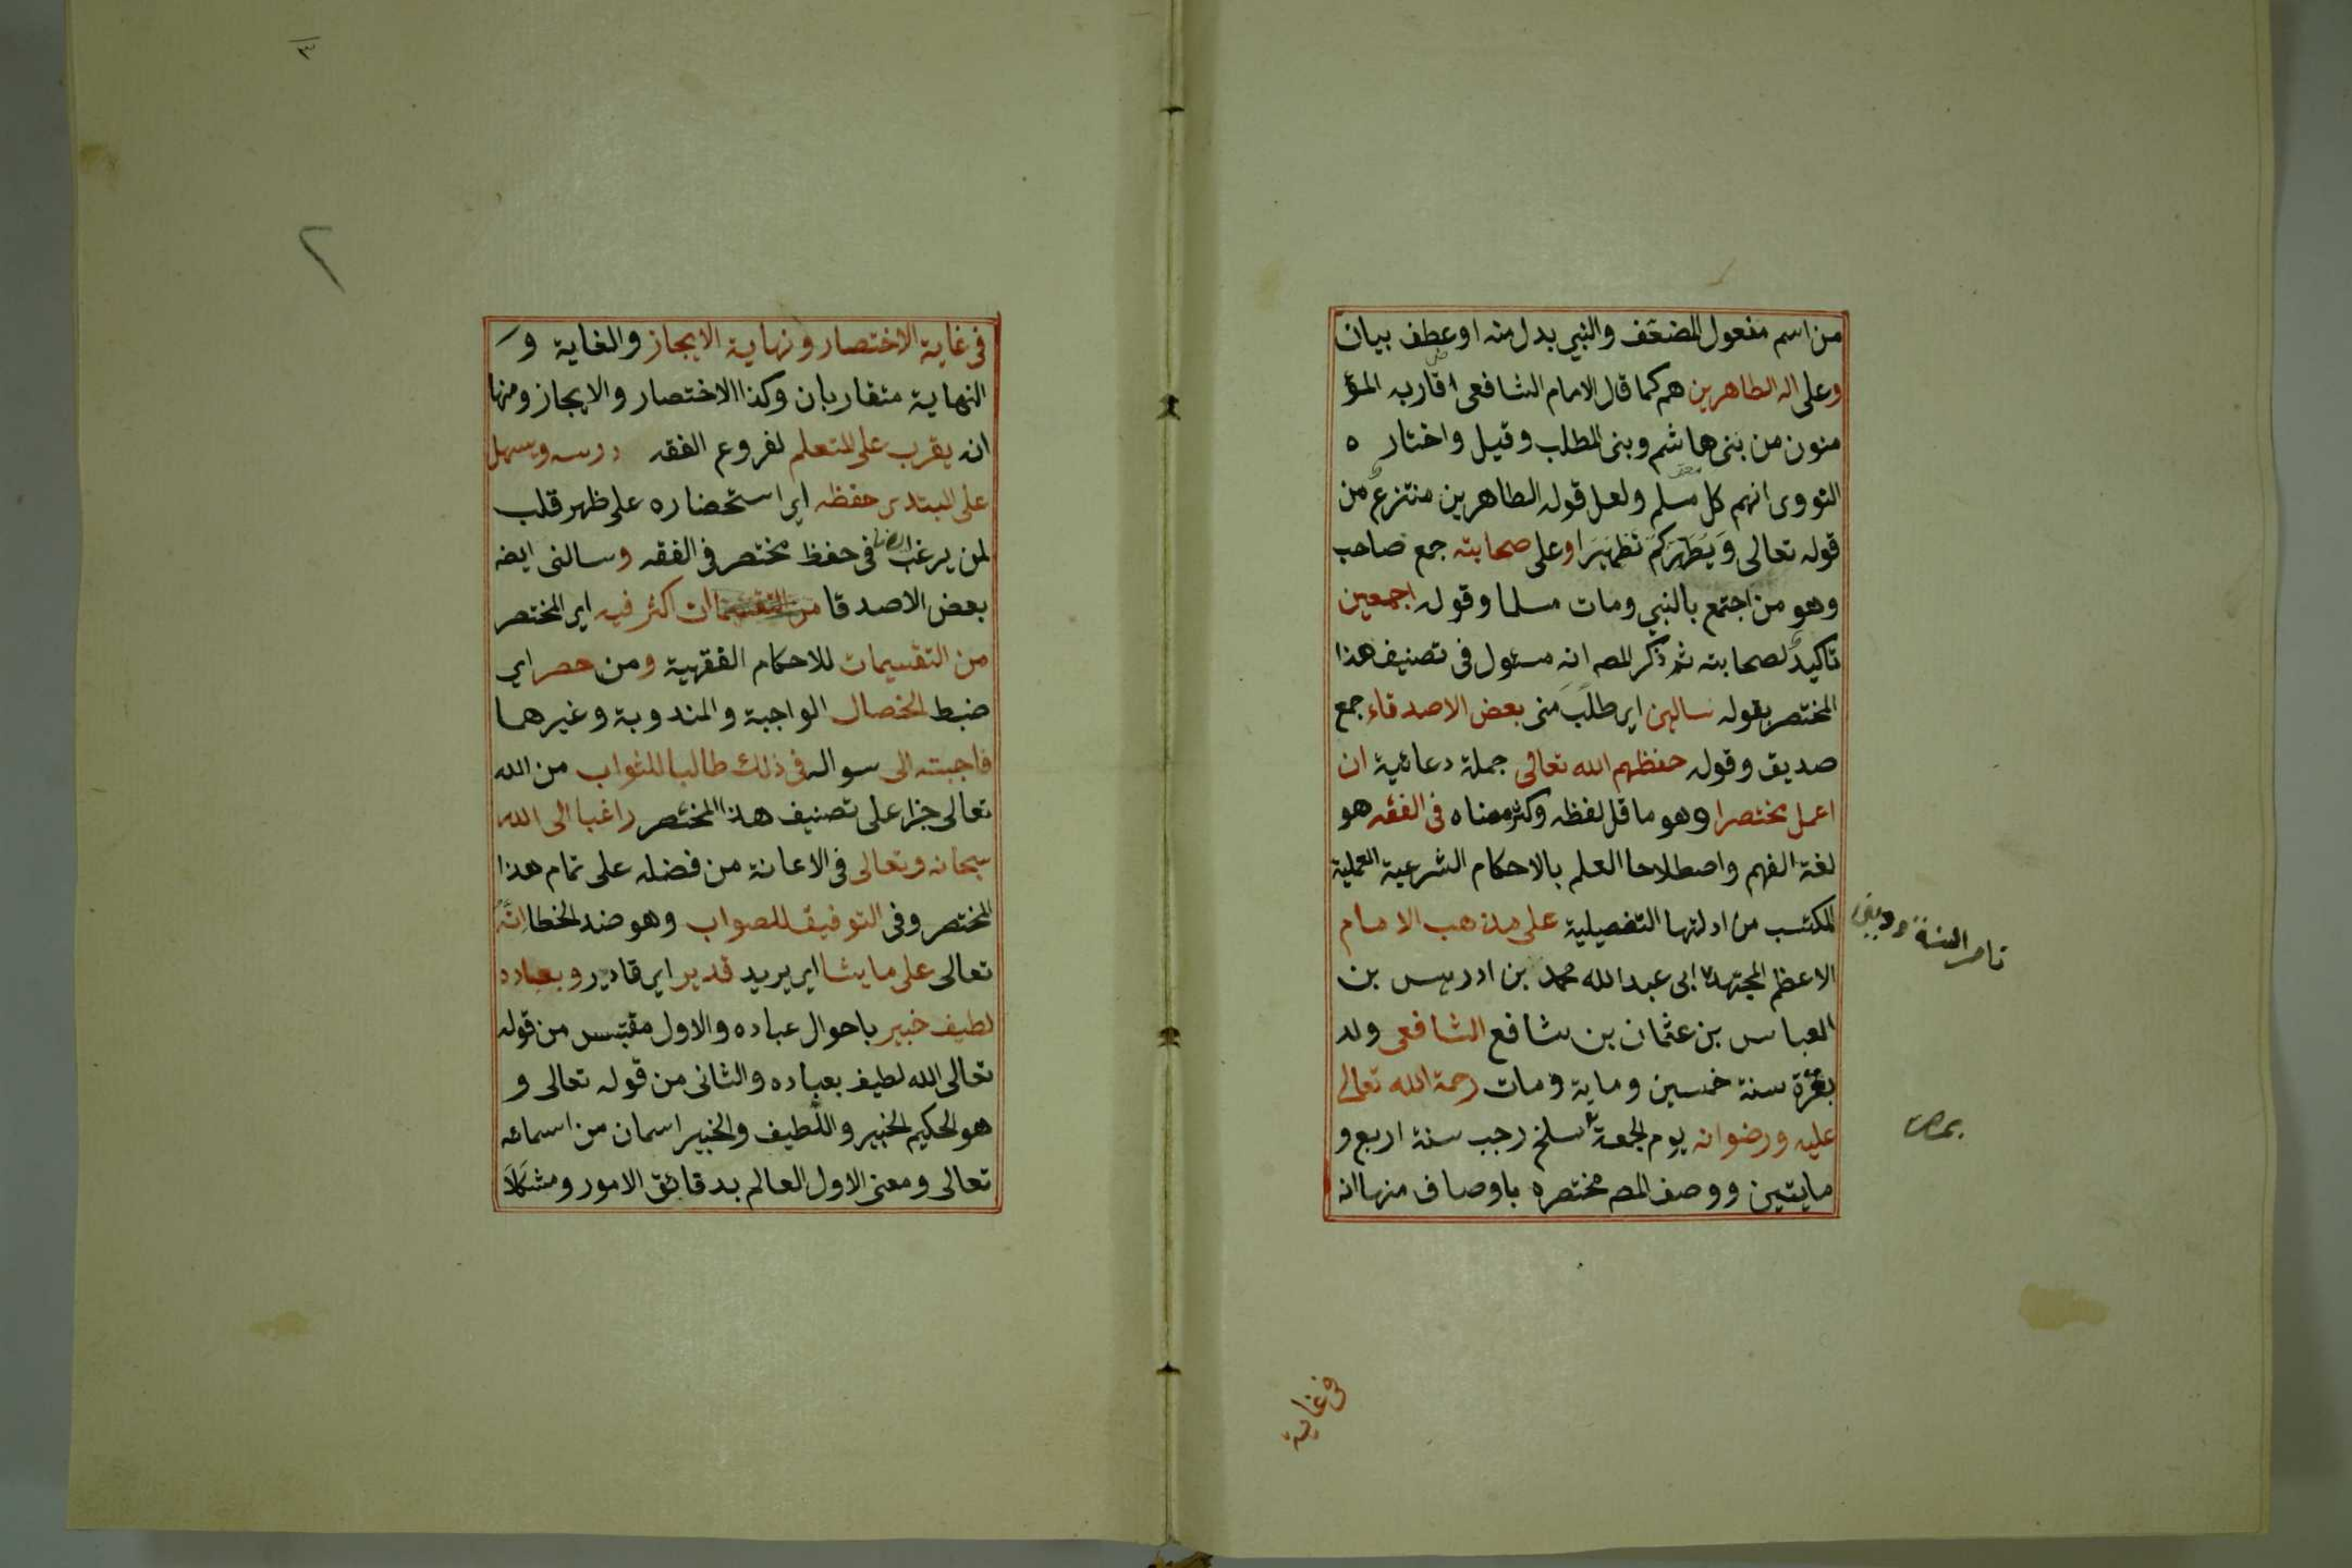 من اسم مفعول المضعف والنبي بدل منه او عطف بيان
وعلى اله الطاهرين هم كما قال الامام الشافعى اقاربه المؤ
منون من بنى هاشم وبنى المطلب وقيل واختار ه
النووى انهم كل مسلم ولعل قوله الطاهرين منتزع من
قوله تعالى وَيُطَهِّرَكُمْ تَطْهِيرًا وعلى صحابته جمع صاحب
وهو من اجتمع بالنبي ومات مسلما وقوله اجمعين
تاكيدٌ لصحابته ثم ذكر المصـ انه مسئول فى تصنيف هذا
المختصر بقوله سالنى اى طلب منى بعض الاصدقاء جمع
صديق وقوله حفظهم الله تعالى جملة دعائية ان
اعمل مختصرا وهو ما قل لفظه وكثر معناه فى الفقه هو
لغة الفهم واصطلاحا العلم بالاحكام الشرعية العملية
المكتسب من ادلتها التفصيلية على مذهب الامام
ناصر السنة
الاعظم المجتهد ابى عبد الله محمد بن ادريس بن
العباس بن عثمان بن شافع الشافعى ولد
بغزة سنة خمسين وماية ومات رحمة الله تعالى
عليه ورضوانه يوم الجمعة سلخ رجب سنة اربع و
مايتين ووصف المصـ مختصره باوصاف منها انه
فى غاية
٣
٢
فى غاية الاختصار ونهاية الايجاز والغاية و
النهاية متقاربان وكذا الاختصار والايجاز ومنها
انه يقرب على المتعلم لفروع الفقه درسه ويسهل
على المبتدى حفظه اى استحضاره على ظهر قلب
لمن يرغب فى حفظ مختصر فى الفقه وسالنى ايضـ
بعض الاصدقا ان اكثر فيه اى المختصر
من التقسيمات للاحكام الفقهية ومن حصر اى
ضبط الخصال الواجبة والمندوبة وغيرهما
فاجبته الى سواله فى ذلك طالبا للثواب من الله
تعالى جزا على تصنيف هذا المختصر راغبا الى الله
سبحانه وتعالى فى الاعانة من فضله على تمام هذا
المختصر وفى التوفيق للصواب وهو ضد الخطا انّه
تعالى على ما يشا اى يريد قدير اى قادر وبعباده
لطيف خبير باحوال عباده والاول مقتبس من قوله
تعالى الله لطيف بعباده والثانى من قوله تعالى و
هو الحكيم الخبير واللطيف والخبير اسمان من اسمائه
تعالى ومعنى الاول العالم بدقائق الامور ومشكلا